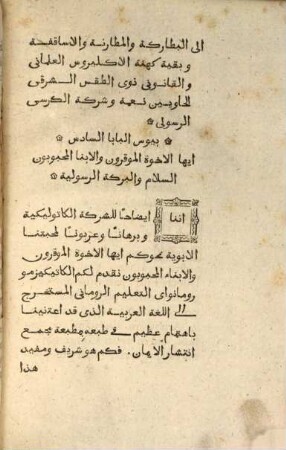 الى البطاركة والمطارنة والاساقفة
و بقية كهنة الاكليروس العلماني
و القانوني ذوى الطقس الشرقي
للحاويين نعمة و شركة الكرسي
الرسولي
* بيوس البابا السادس *
ايها الاخوة الموقرون والابنا المحبوبون
* السلام والبركة الرسولية *
اننا ايضاحًا للشركة الكاثوليكية
و برهانًا وعربونًا لمحبتنا
الابوية نحوكم ايها الاخوة الموقرون
والابناء المحبوبون نقدم لكم الكاتيكيزمو
رومانو اى التعليم الروماني المستخرج
الى اللغة العربية الذى قد اعتنينا
باهتمام عظيم فى طبعه بمطبعة مجمع
انتشار الايمان. فكم هو شريف ومفيد
هذا